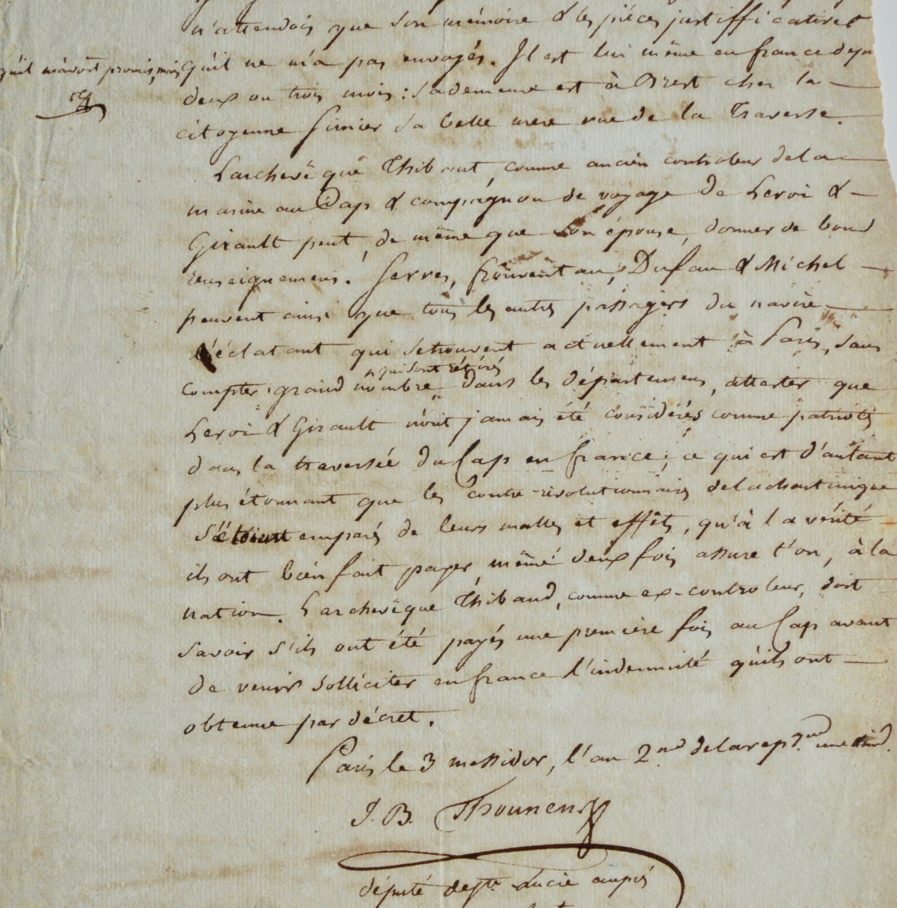 n'attendois que son mémoire & les pièces justifficatives
qu'il m'avoit promis, mais qu'il ne m'a pas envoyés. Il est lui même en france depuis
deux ou trois mois : sa demeure est à Brest chez la
citoyenne Simier sa belle mere rue de la Traverse.
Larchevêque Thibaut, comme ancien controleur de la
marine au Cap & compagnon de voyage de Leroi &
Girault peut, de même que son épouse, donner de bons
renseignemens. Serres, Dufau & Michel
peuvent ainsi que tous les autres passagers du navire
L'éclatant qui se trouvent actuellement à Paris, sans
compter grand nombre qui sont rétirés dans les départemens, attester que
Leroi & Girault n'ont jamais été considérés comme patriotes
dans la traversée du Cap en france ; ce qui est d'autant
plus étonnant que les contre-révolutionnaires de la martinique
s'étoient emparés de leurs malles et effets, qu'à la vérité
ils ont bien fait payer même deux fois assure t'on, à la
nation. Larchevêque Thibaud, comme ex-controleur, doit
savoir s'ils ont été payés une première fois au Cap avant
de venir solliciter en france l'indemnité qu'ils ont
obtenue par décret.
Paris le 3 messidor, l'an 2nd de la rep.
J. B. Thounens
député de Ste Lucie auprès